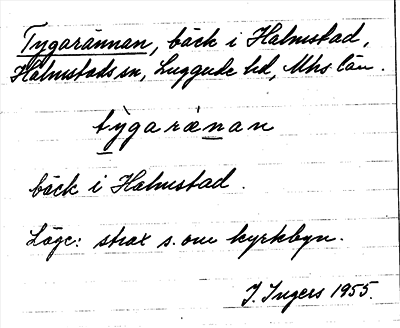 Tygarännan, bäck i Halmstad,
Halmstads sn, Luggude hd, Mhs län.
tỳgarènan
bäck i Halmstad.
Läge: strax s. om kyrkbyn.
I. Ingers 1955.